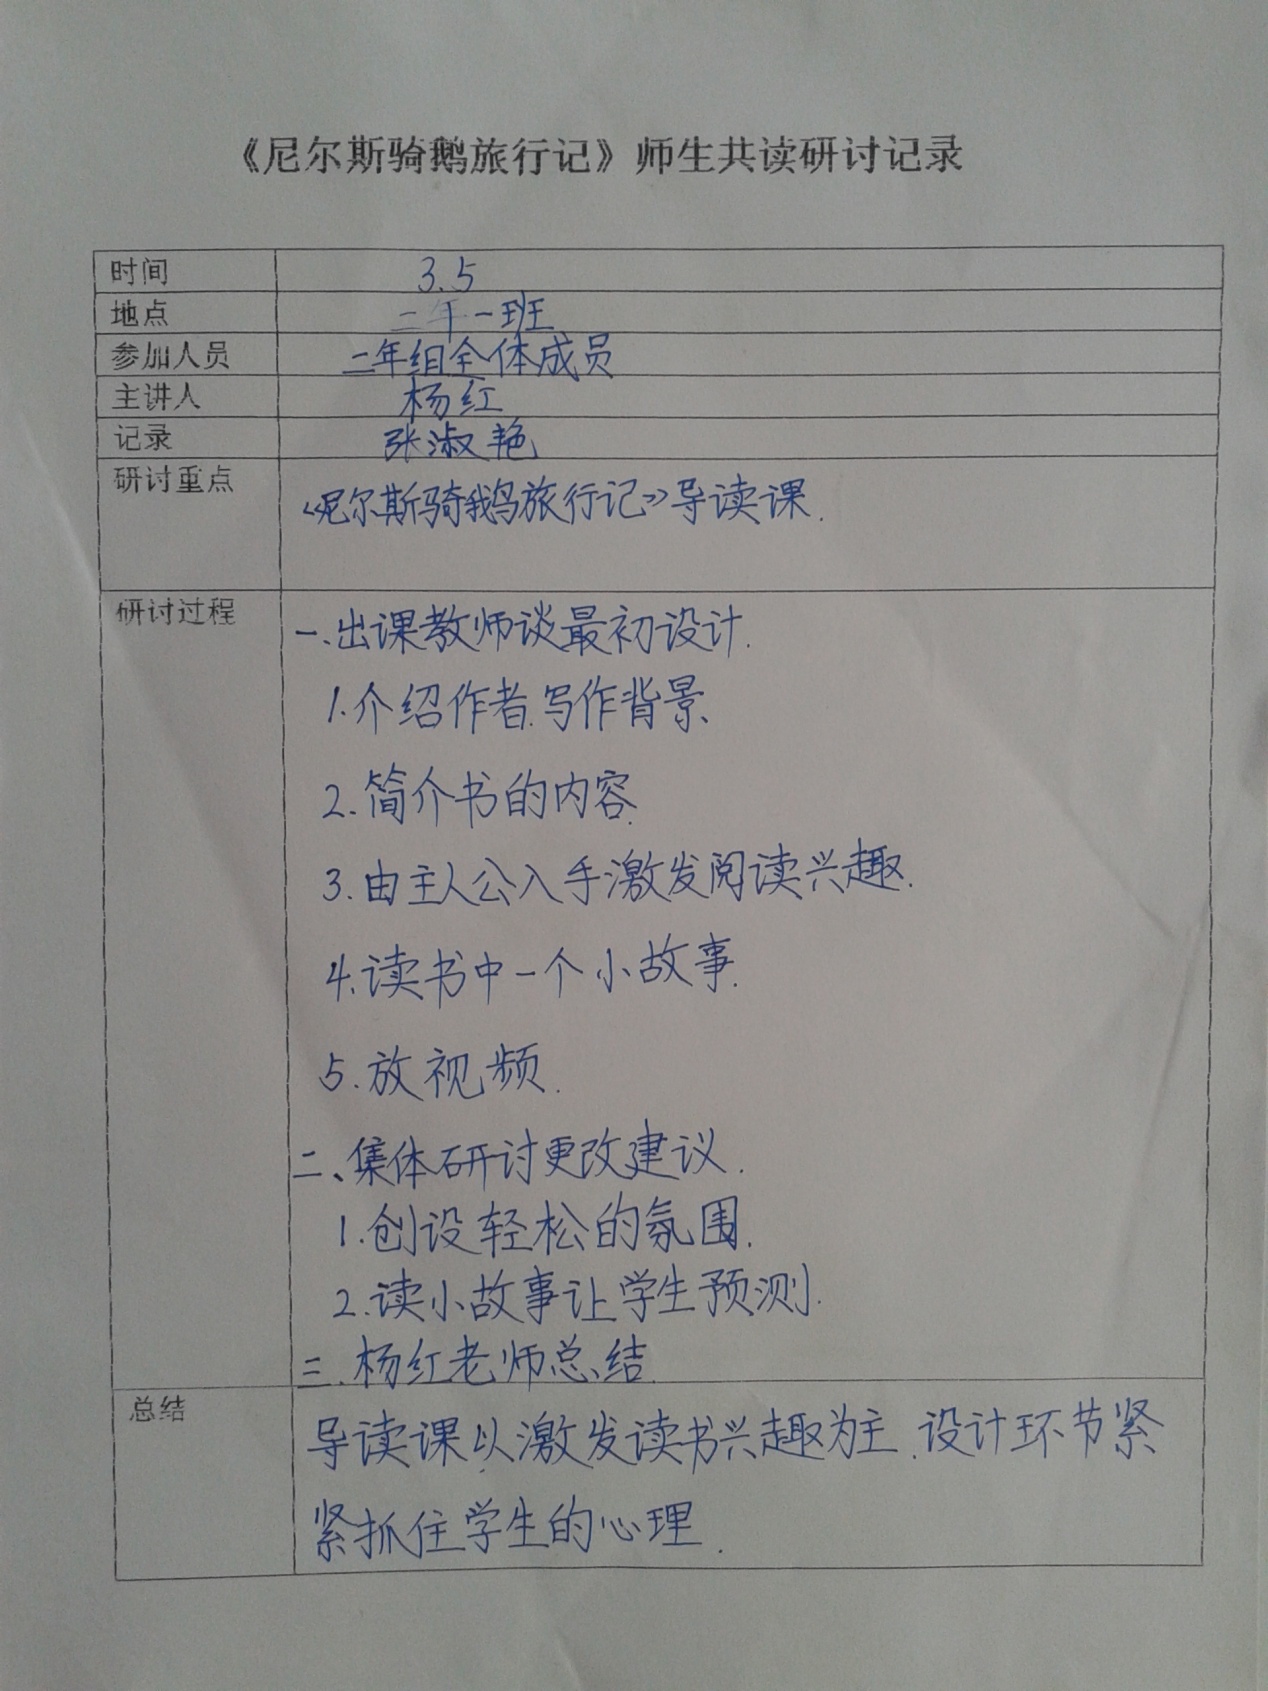 《尼尔斯骑鹅旅行记》师生共读研讨记录
时间 3.5
地点 二年一班
参加人员 二年组全体成员
主讲人 杨红
记录 张淑艳
研讨重点 《尼尔斯骑鹅旅行记》导读课.
研讨过程 一.出课教师谈最初设计.
1.介绍作者.写作背景.
2.简介书的内容.
3.由主人公入手激发阅读兴趣.
4.读书中一个小故事.
5.放视频.
二、集体研讨更改建议.
1.创设轻松的氛围.
2.读小故事让学生预测.
三.杨红老师总结.
总结 导读课以激发读书兴趣为主.设计环节紧
紧抓住学生的心理.